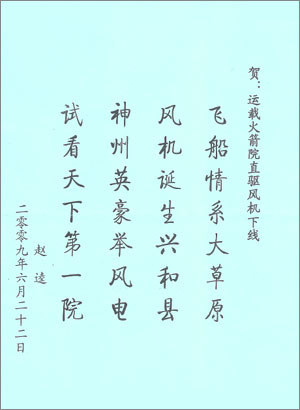 贺：运载火箭院直驱风机下线
飞船情系大草原
风机诞生兴和县
神州英豪举风电
试看天下第一院
赵逵
二零零九年六月二十二日